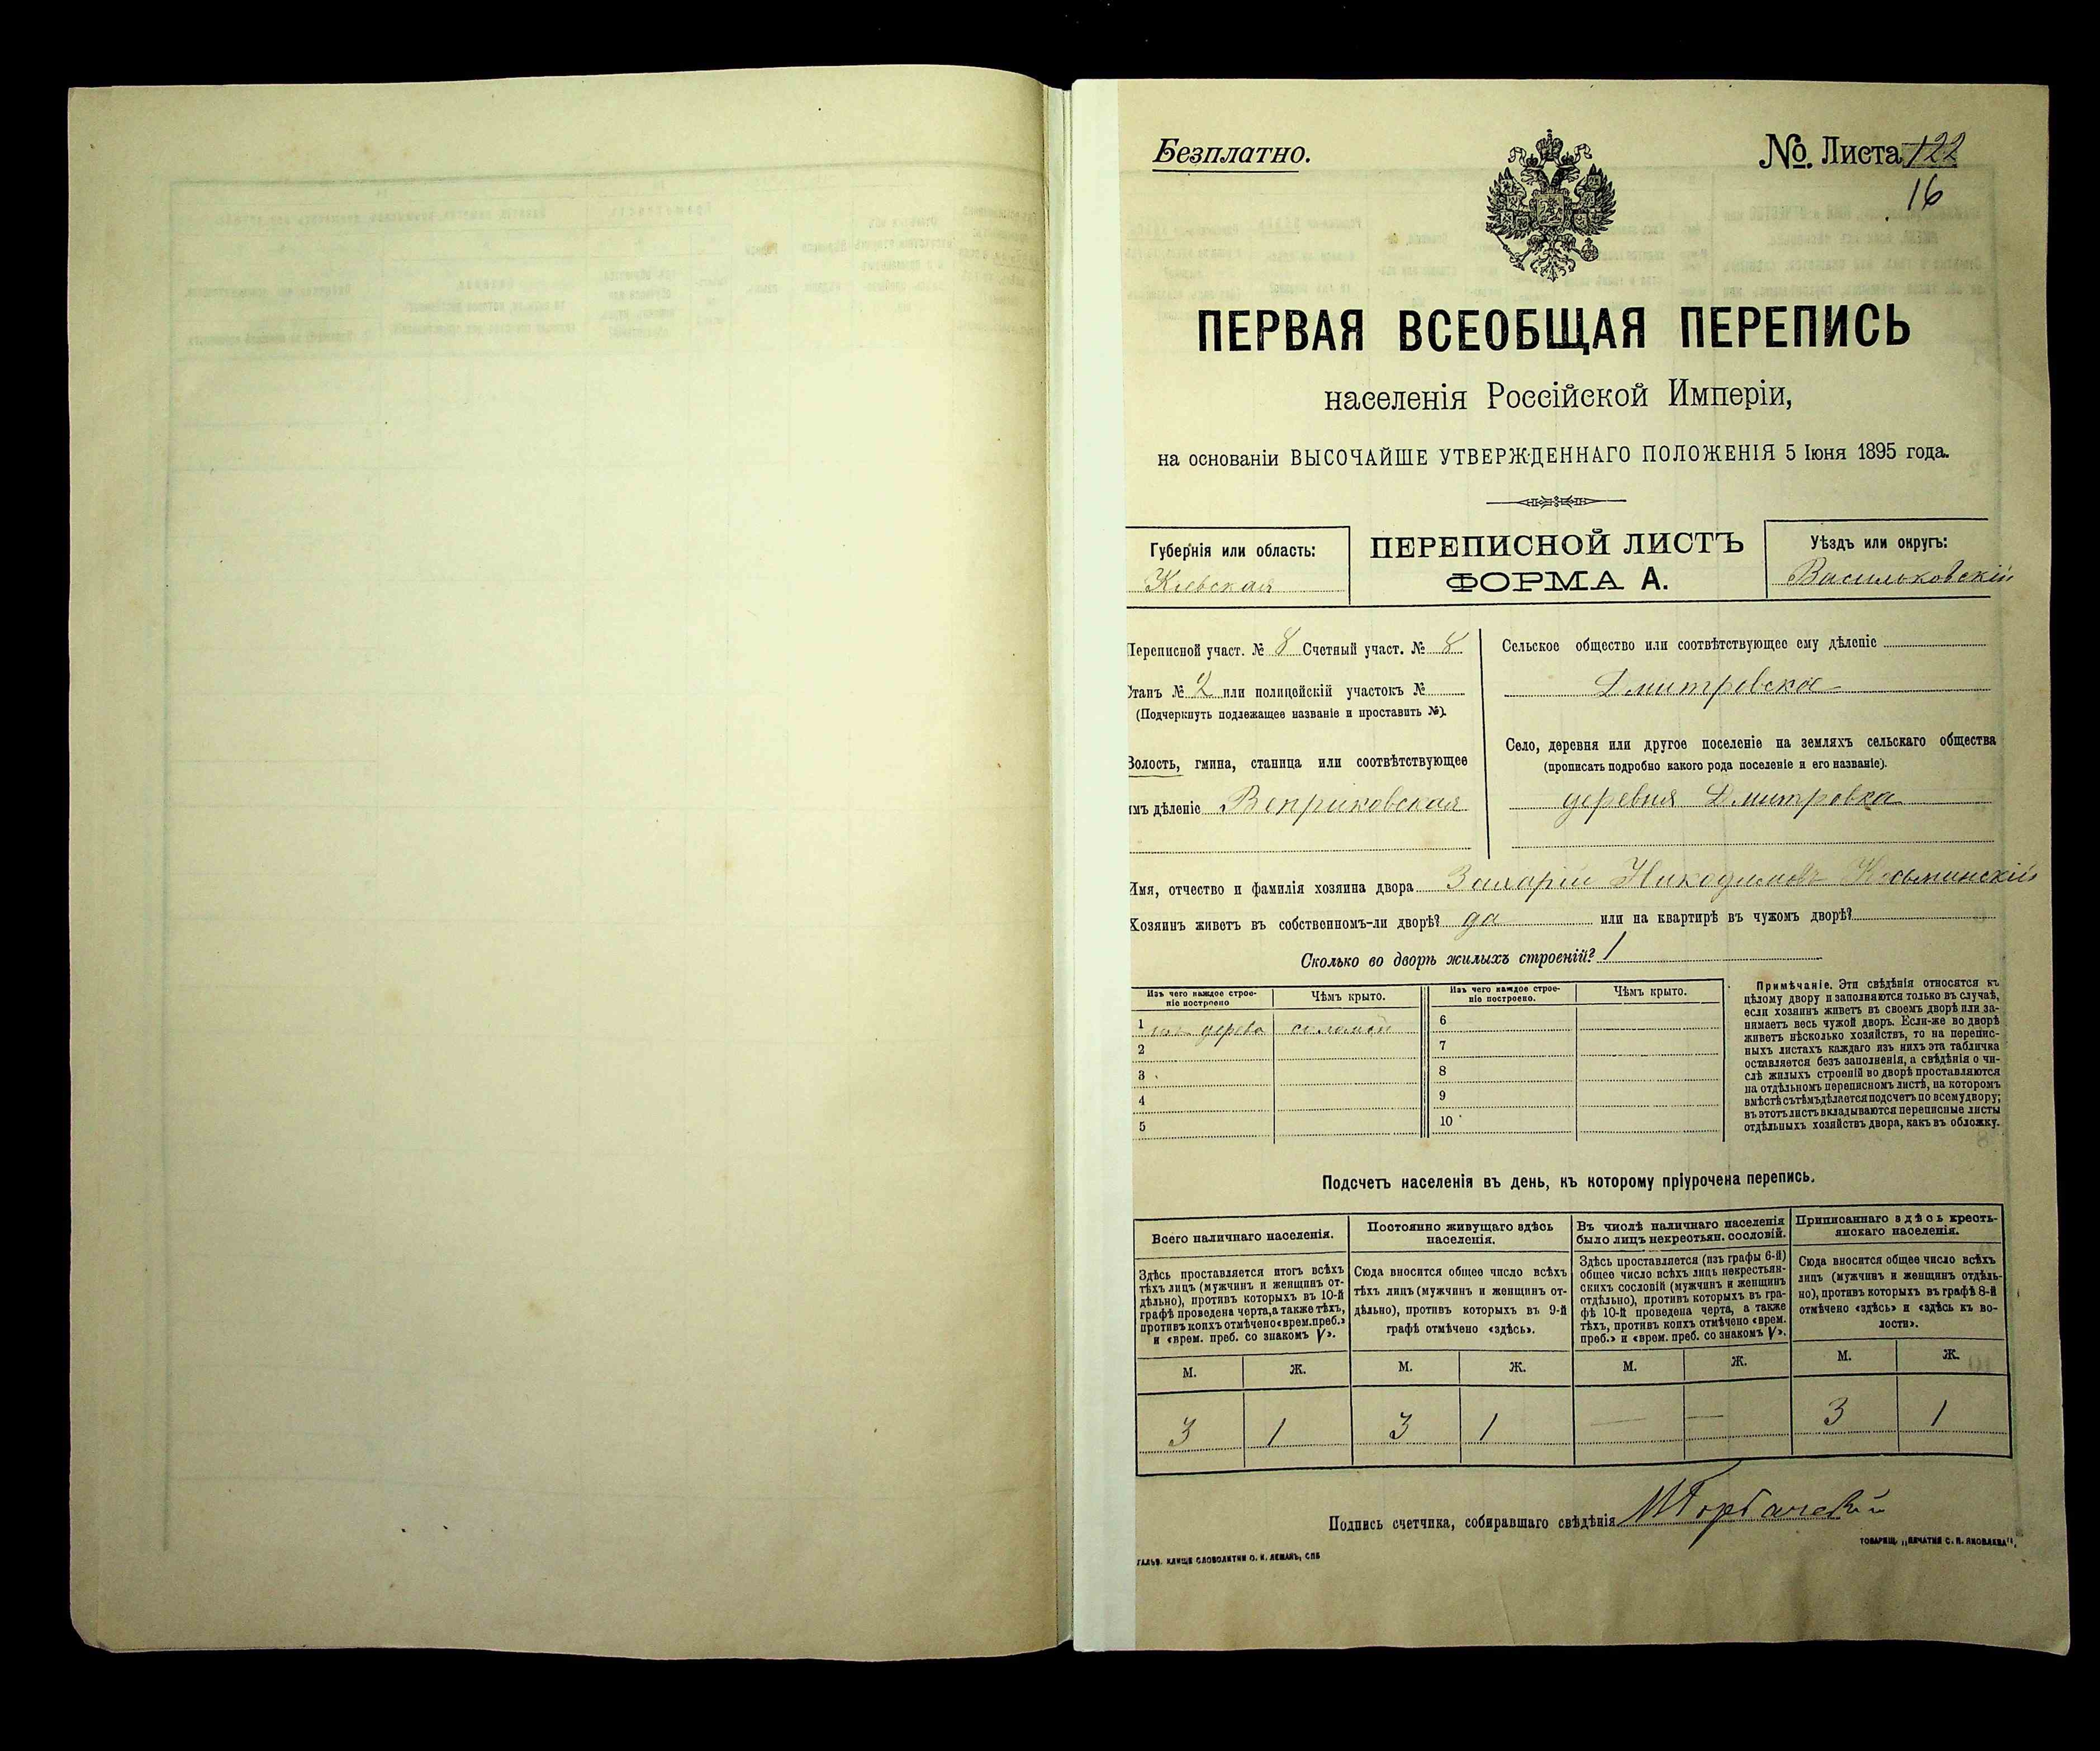 Безплатно.
№. Листа 122
16
ПЕРВАЯ ВСЕОБЩАЯ ПЕРЕПИСЬ
населенія Россійской Имперіи,
на основаніи ВЫСОЧАЙШЕ УТВЕРЖДЕННАГО ПОЛОЖЕНІЯ 5 Іюня 1895 года.
Губернія или область:
Кіевская
ПЕРЕПИСНОЙ ЛИСТЪ
ФОРМА А.
Уѣздъ или округъ:
Васильковскій
Переписной участ. № 8 Счетный участ. № 8
Станъ № 2 или полицейскій участокъ №
(Подчеркнуть подлежащее названіе и проставить №).
Волость, гмина, станица или соотвѣтствующее
имъ дѣленіе Веприковская
Сельское общество или соотвѣтствующее ему дѣленіе
Дмитровское
Село, деревня или другое поселеніе на земляхъ сельскаго общества
(прописать подробно какого рода поселеніе и его названіе).
деревня Дмитровка
Имя, отчество и фамилія хозяина двора Захарій Никодимовъ Косьминскій
Хозяинъ живетъ въ собственномъ-ли дворѣ? да или на квартирѣ въ чужомъ дворѣ?
Сколько во дворѣ жилыхъ строеній? 1
Изъ чего каждое строе-
ніе построено
Чѣмъ крыто.
Изъ чего каждое строе-
ніе построено.
Чѣмъ крыто.
1 изъ дерева соломой
2
3
4
5
6
7
8
9
10
Примѣчаніе. Эти свѣдѣнія относятся къ
цѣлому двору и заполняются только въ случаѣ,
если хозяинъ живетъ въ своемъ дворѣ или за-
нимаетъ весь чужой дворъ. Если-же во дворѣ
живетъ нѣсколько хозяйствъ, то на перепис-
ныхъ листахъ каждаго изъ нихъ эта табличка
оставляется безъ заполненія, а свѣдѣнія о чи-
слѣ жилыхъ строеній во дворѣ проставляются
на отдѣльномъ переписномъ листѣ, на которомъ
вмѣстѣ съ тѣмъ дѣлается подсчетъ по всему двору;
въ этотъ листъ вкладываются переписные листы
отдѣльныхъ хозяйствъ двора, какъ въ обложку.
Подсчетъ населенія въ день, къ которому пріурочена перепись.
Всего наличнаго населенія.
Здѣсь проставляется итогъ всѣхъ
тѣхъ лицъ (мужчинъ и женщинъ от-
дѣльно), противъ которыхъ въ 10-й
графѣ проведена черта, а также тѣхъ,
противъ коихъ отмѣчено «врем. преб.»
и «врем. преб. со знакомъ V».
Постоянно живущаго здѣсь
населенія.
Сюда вносится общее число всѣхъ
тѣхъ лицъ (мужчинъ и женщинъ от-
дѣльно), противъ которыхъ въ 9-й
графѣ отмѣчено «здѣсь».
Въ числѣ наличнаго населенія
было лицъ некрестьян. сословій.
Здѣсь проставляется (изъ графы 6-й)
общее число всѣхъ лицъ некрестьян-
скихъ сословій (мужчинъ и женщинъ
отдѣльно), противъ которыхъ въ гра-
фѣ 10-й проведена черта, а также
тѣхъ, противъ коихъ отмѣчено «врем.
преб.» и «врем. преб. со знакомъ V».
Приписаннаго здѣсь кресть-
янскаго населенія.
Сюда вносится общее число всѣхъ
лицъ (мужчинъ и женщинъ отдѣль-
но), противъ которыхъ въ графѣ 8-й
отмѣчено «здѣсь» и «здѣсь къ во-
лости».
М. Ж. М. Ж. М. Ж. М. Ж.
3 1 3 1 — — 3 1
Подпись счетчика, собиравшаго свѣдѣнія МГорбачевскій
ГАЛЬВ. КЛИШЕ СЛОВОЛИТНИ О. И. ЛЕМАНЪ, СПБ
ТОВАРИЩ. „ПЕЧАТНЯ С. П. ЯКОВЛЕВА".